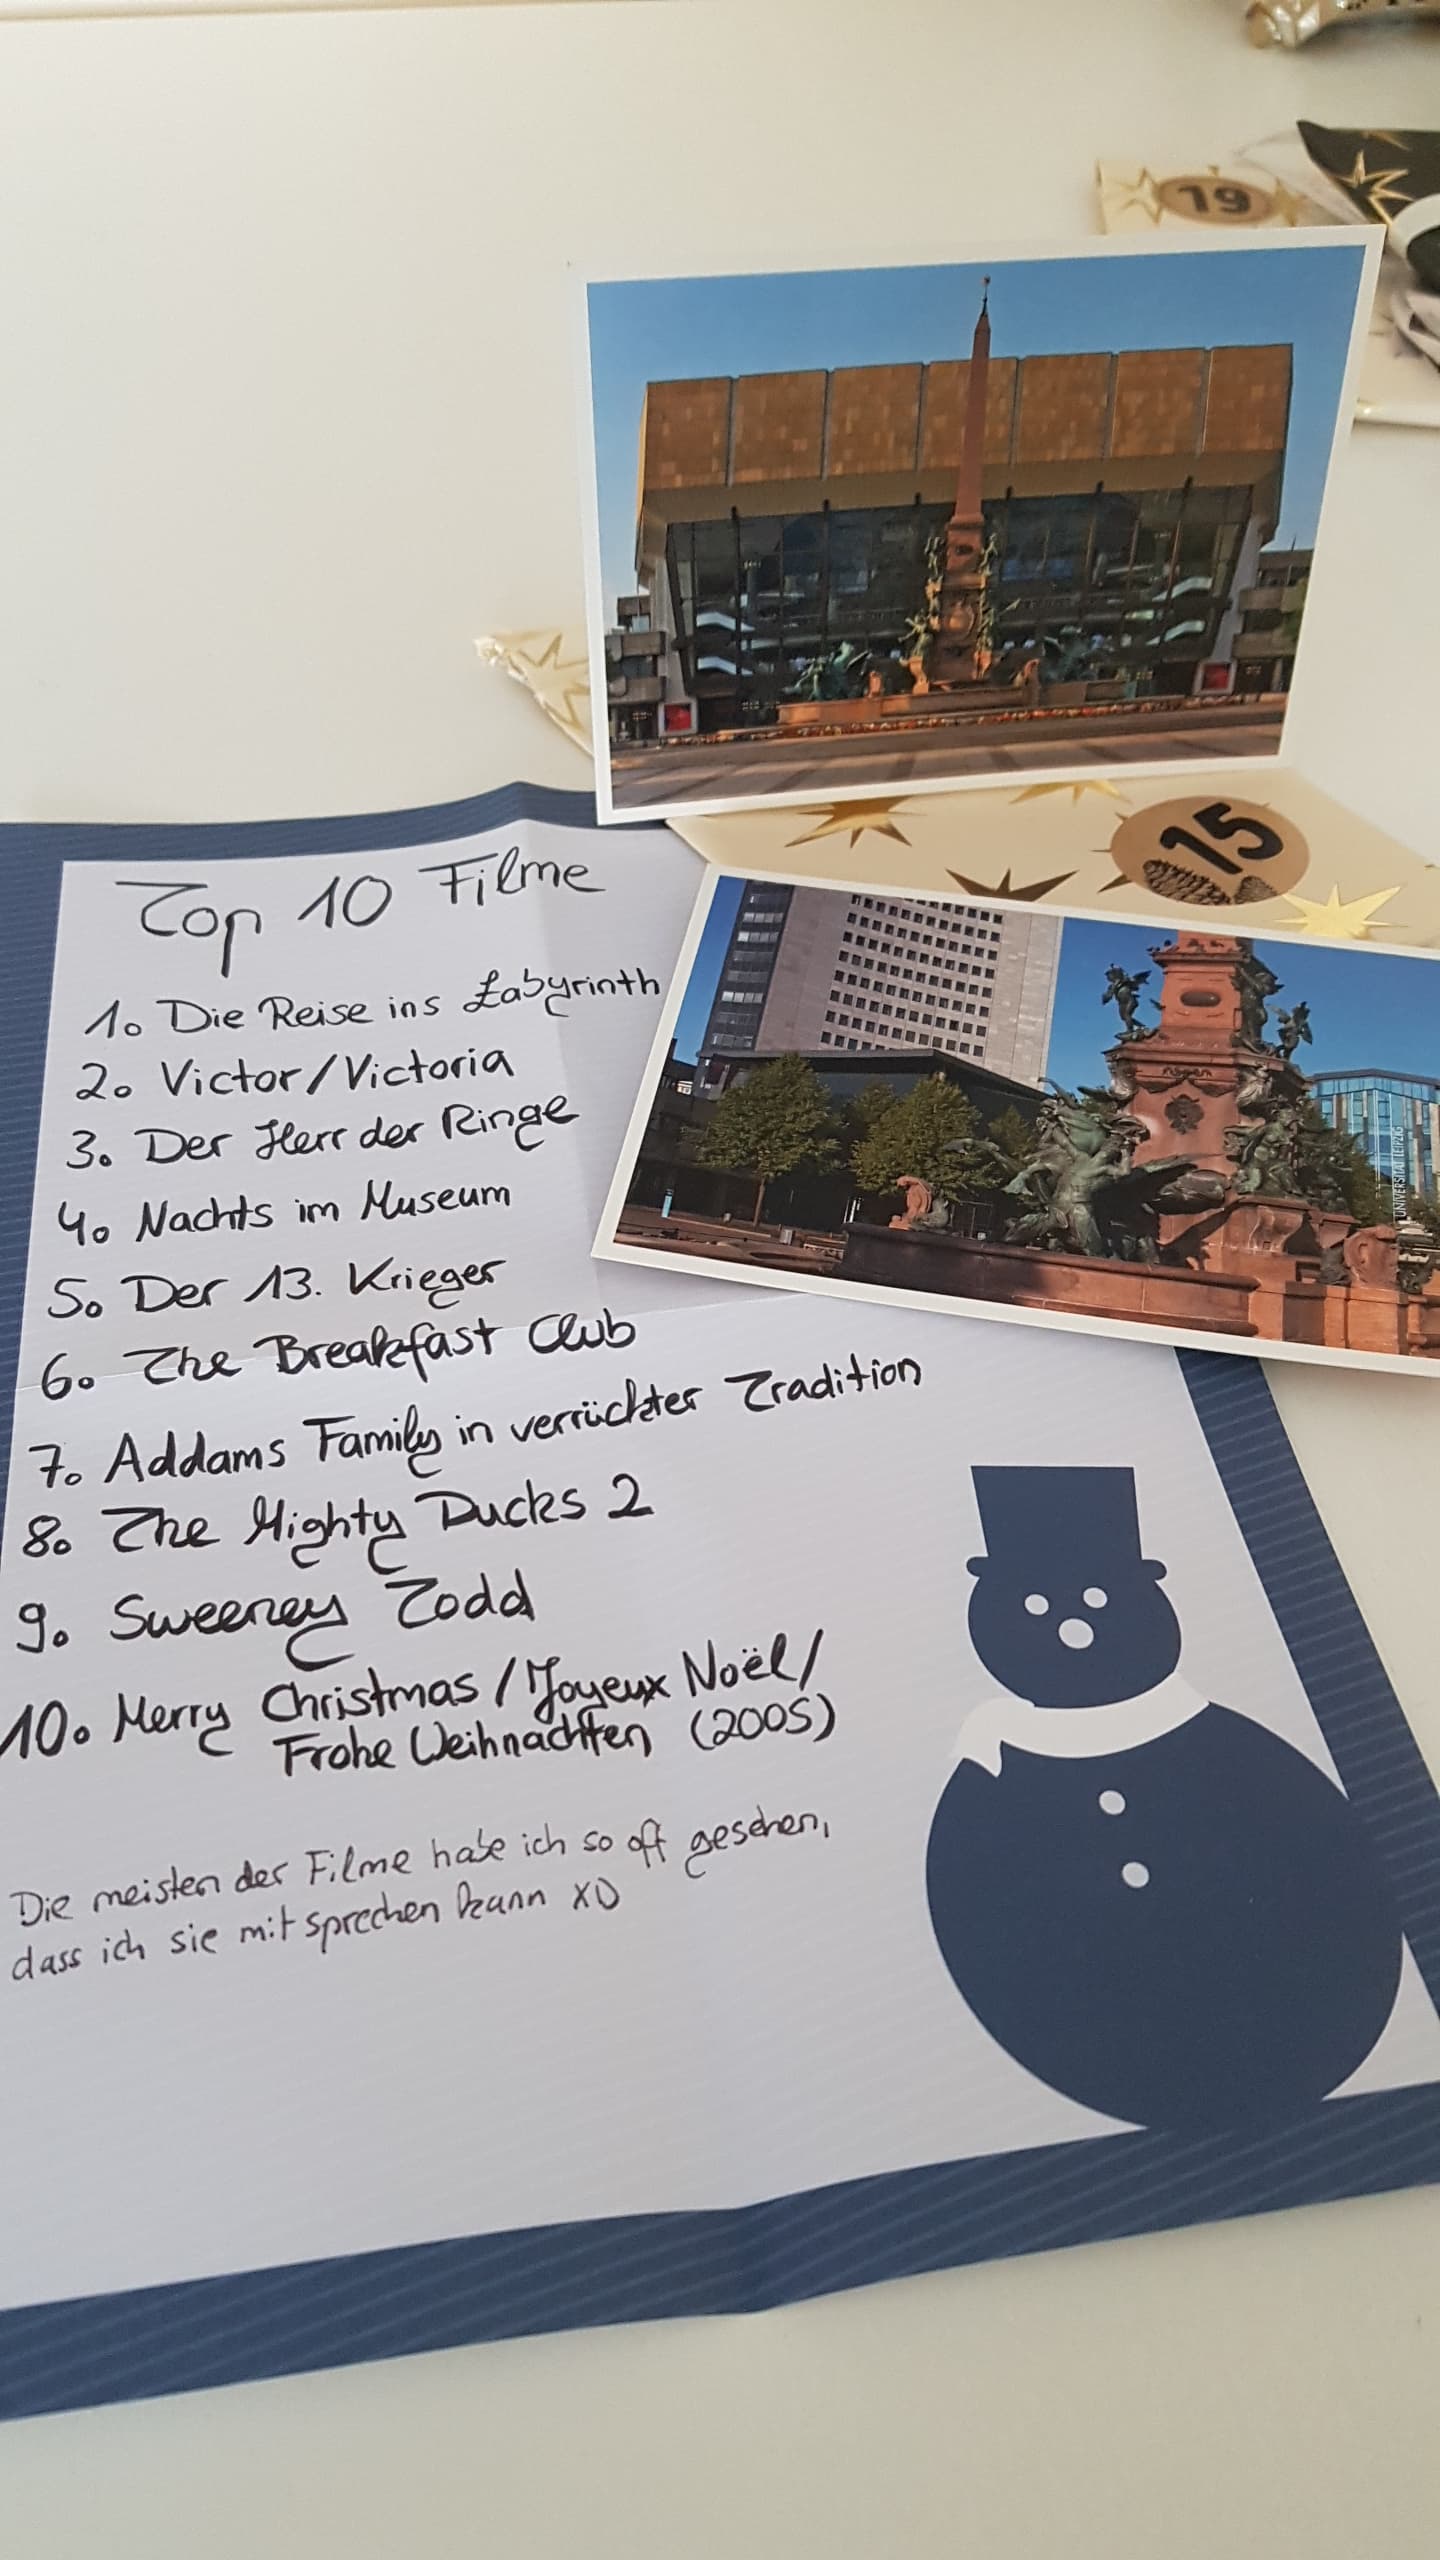 19
15
UNIVERSITÄT LEIPZIG
Top 10 Filme
1. Die Reise ins Labyrinth
2. Victor/Victoria
3. Der Herr der Ringe
4. Nachts im Museum
5. Der 13. Krieger
6. The Breakfast Club
7. Addams Family in verrückter Tradition
8. The Mighty Ducks 2
9. Sweeney Todd
10. Merry Christmas/Joyeux Noël/
Frohe Weihnachten (2005)
Die meisten der Filme habe ich so oft gesehen,
dass ich sie mitsprechen kann XD